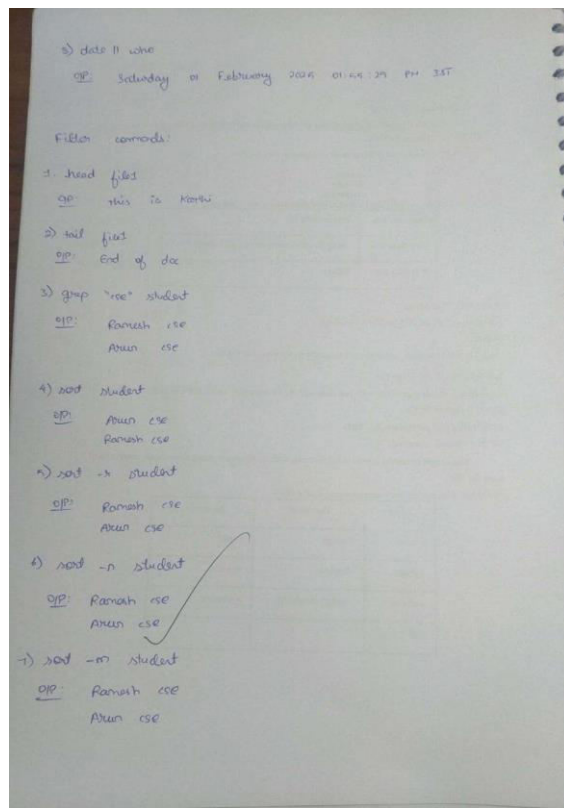 5) date || who
O/P: Saturday 01 February 2025 01:45:29 PM IST
Filter commands:
1. head file1
O/P: This is Karthi
2) tail file1
O/P: End of doc
3) grep "cse" student
O/P: Ramesh cse
Arun cse
4) sort student
O/P: Arun cse
Ramesh cse
5) sort -r student
O/P: Ramesh cse
Arun cse
6) sort -n student
O/P: Ramesh cse
Arun cse
7) sort -m student
O/P: Ramesh cse
Arun cse